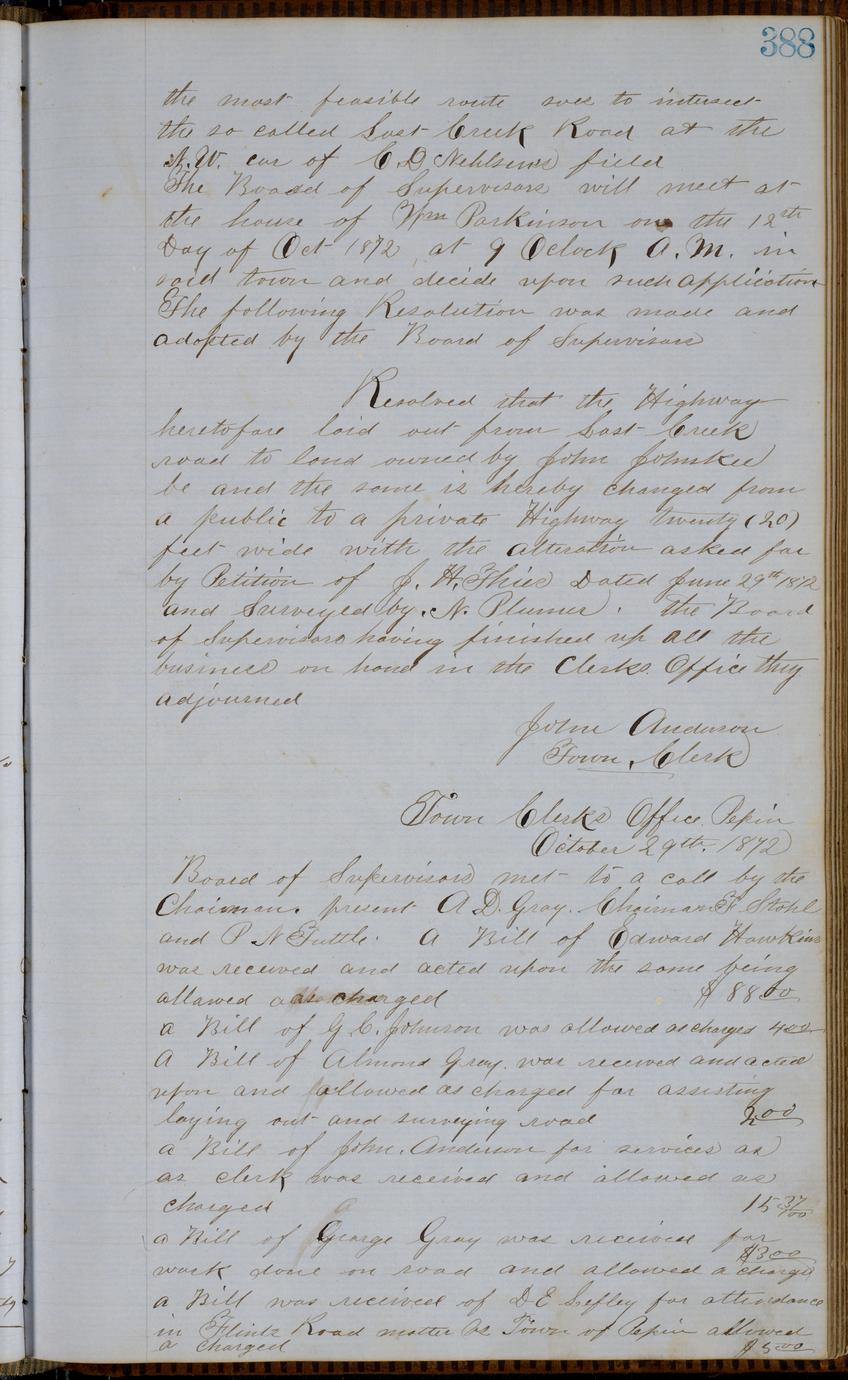 388
the most feasible route soas to intersect
the so called Lost Creek Road at the
N.W. cor of C. D Nehlsens field
The Board of Supervisors will meet at
the house of Wm Parkinson on the 12th
Day of Oct 1872 at 9 Oclock A. M. in
said town and decide upon such application
The following Resolution was made and
adopted by the Board of Supervisors
Resolved that the Highway
heretofore laid out from Lost Creek
road to land owned by John
be and the same is hereby changed from
a public to a private Highway twenty (20)
feet wide with the alteration asked for
by Petition of J. H. Thies Dated June 29th 1872
and Surveyed by N. Plumer. the Board
of Supervisors having finished up all the
business on hand in the Clerks Office they
adjourned
John Anderson
Town Clerk
Town Clerks Office Pepin
October 29th. 1872
Board of Supervisors met to a call by the
Chairman. present A D. Gray. Chairman F Stohl
and P N Tuttle. A Bill of Edward Hawkins
was received and acted upon the same being
allowed as charged $ 88 00
a Bill of G C. Johnson was allowed as charged 4 00
A Bill of Almond Gray. was received and acted
upon and allowed as charged for assisting
laying out and surveying road 2 00
a Bill of John. Anderson for services as
as clerk was received and allowed as
charged 15 37/100
a Bill of George Gray was received for
work done on road and allowed a charged $3 00
a Bill was received of D E Lefley for attendance
in Flints Road matter vs Town of Pepin allowed
a charged $5 00